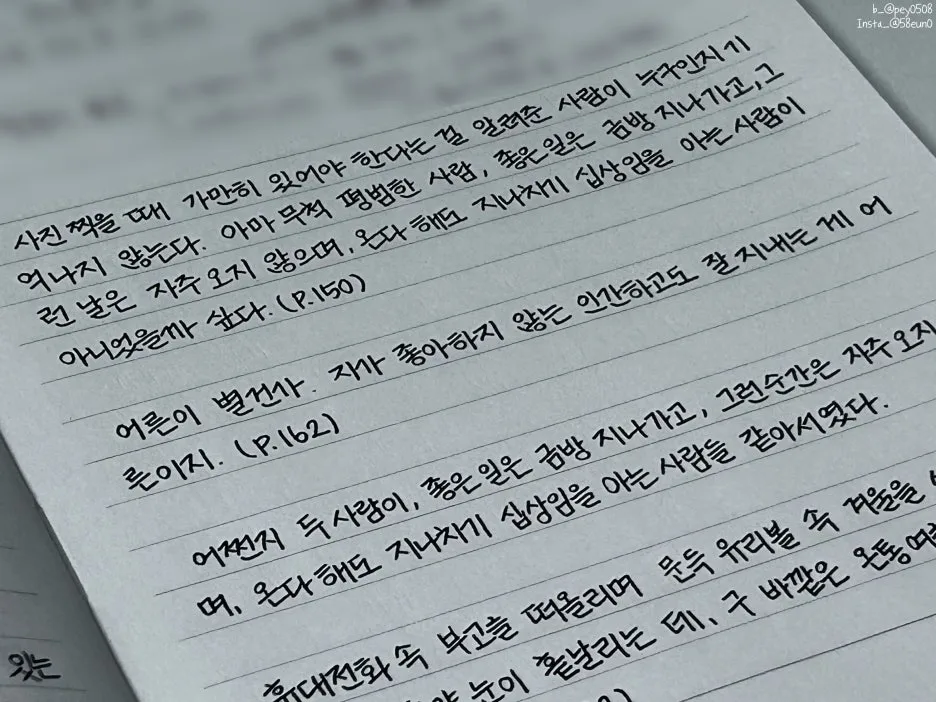 b_@pey0508
Insta_@58eun0
사진 찍을 때 가만히 있어야 한다는 걸 알려준 사람이 누구인지 기
억나지 않는다. 아마 무척 평범한 사람, 좋은 일은 금방 지나가고, 그
런 날은 자주 오지 않으며, 온다 해도 지나치기 십상임을 아는 사람이
아니었을까 싶다. (P.150)
어른이 별건가. 지가 좋아하지 않는 인간하고도 잘 지내는 게 어
른이지. (P.162)
어쩐지 두 사람이, 좋은 일은 금방 지나가고, 그런 순간은 자주 오지
며, 온다 해도 지나치기 십상임을 아는 사람들 같아서였다.
휴대전화 속 부고를 떠올리며 문득 유리볼 속 겨울을
눈이 흩날리는 데, 구 바깥은 온통 여름
있는